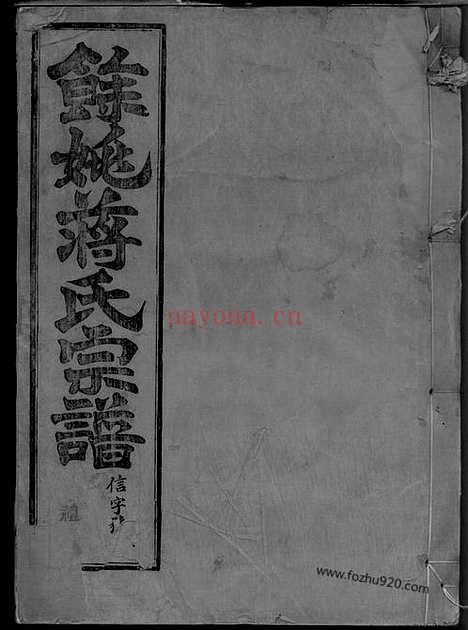 餘姚蔣氏宗譜
信字號
禮
nayona.cn
www.fozhu920.com